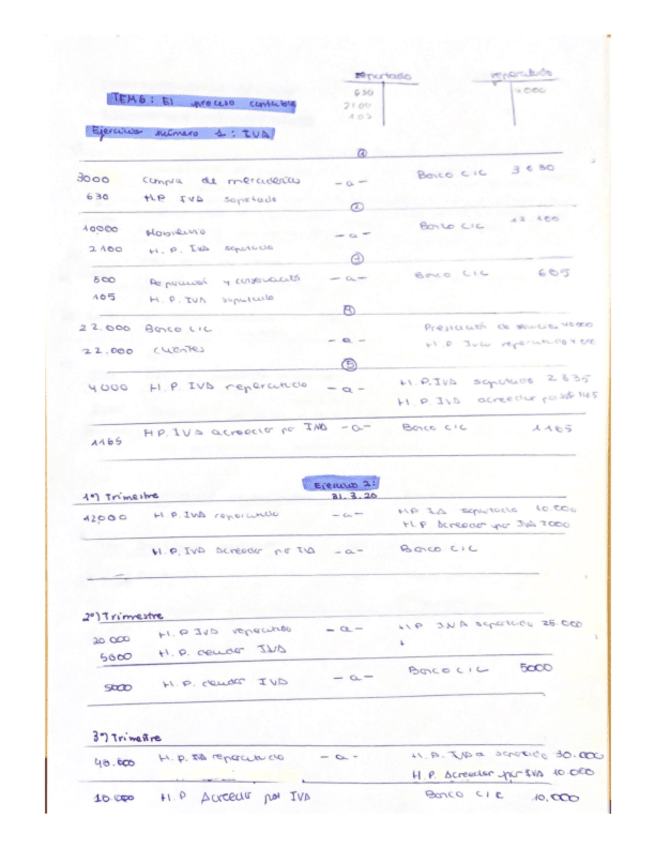 soportado repercutido
630 4000
TEMA 6: El proceso contable 2100
105
Ejercicio número 1: IVA
①
3000 Compra de mercaderías -a- Banco C/C 3630
630 H.P IVA soportado
②
10000 Mobiliario -a- Banco C/C 12 100
2100 H.P. IVA soportado
③
500 Reparación y conservación -a- Banco C/C 605
105 H.P. IVA soportado
④
22.000 Banco C/C -a- Prestación de servicios 40000
22.000 Clientes H.P IVA repercutido 4000
⑤
4000 H.P. IVA repercutido -a- H.P. IVA soportado 2835
H.P. IVA acreedor por IVA 1165
1165 H.P. IVA acreedor por IVA -a- Banco C/C 1165
Ejercicio 2:
1º) Trimestre 31.3.20
12000 H.P. IVA repercutido -a- H.P IVA soportado 10.000
H.P Acreedor por IVA 2000
H.P. IVA Acreedor por IVA -a- Banco C/C
2º) Trimestre
20 000 H.P IVA repercutido -a- H.P IVA soportado 25.000
5000 H.P. deudor IVA
5000 H.P. deudor IVA -a- Banco C/C 5000
3º) Trimestre
40.000 H.P. IVA repercutido -a- H.P. IVA soportado 30.000
H.P. Acreedor por IVA 10.000
10.000 H.P Acreedor por IVA Banco C/C 10,000